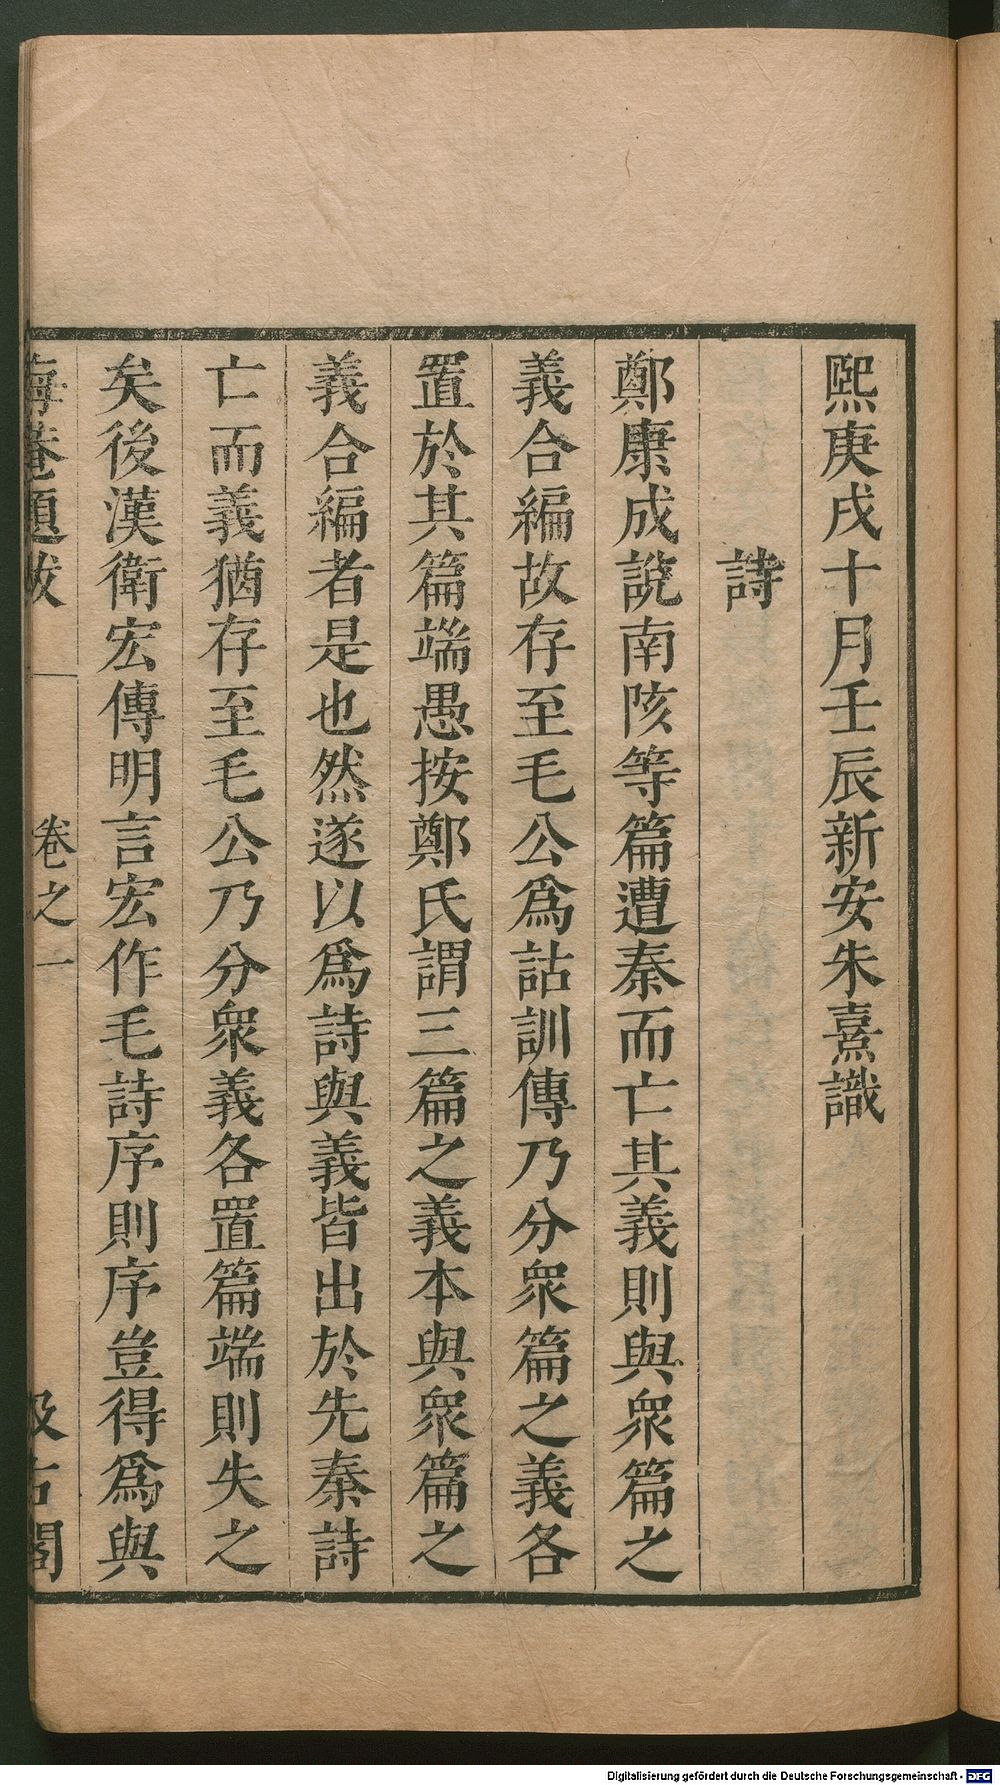 熙庚戌十月壬辰新安朱熹識
詩
鄭康成說南陔等篇遭秦而亡其義則與衆篇之
義合編故存至毛公爲詁訓傳乃分衆篇之義各
置於其篇端愚按鄭氏謂三篇之義本與衆篇之
義合編者是也然遂以爲詩與義皆出於先秦詩
亡而義猶存至毛公乃分衆義各置篇端則失之
矣後漢衛宏傳明言宏作毛詩序則序豈得爲與
晦菴題跋 卷之一 汲古閣
Digitalisierung gefördert durch die Deutsche Forschungsgemeinschaft - DFG